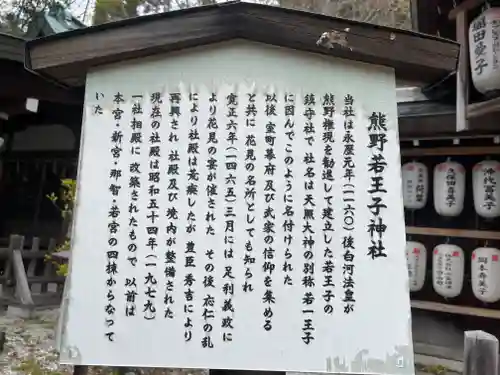 熊野若王子神社
当社は永歴元年(一一六〇)後白河法皇が
熊野権現を勧進して建立した若王子の
鎮守社で 社名は天照大神の別称若一王子
に因んでこのように名付けられた
以後 室町幕府及び武家の信仰を集める
と共に 花見の名所としても知られ
寛正六年(一四六五)三月には 足利義政に
より花見の宴が催された その後 応仁の乱
により社殿は荒廃したが 豊臣秀吉により
再興され 社殿及び境内が整備された
現在の社殿は昭和五十四年(一九七九)
一社相殿に 改築されたもので 以前は
本宮・新宮・那智・若宮の四棟からなって
いた